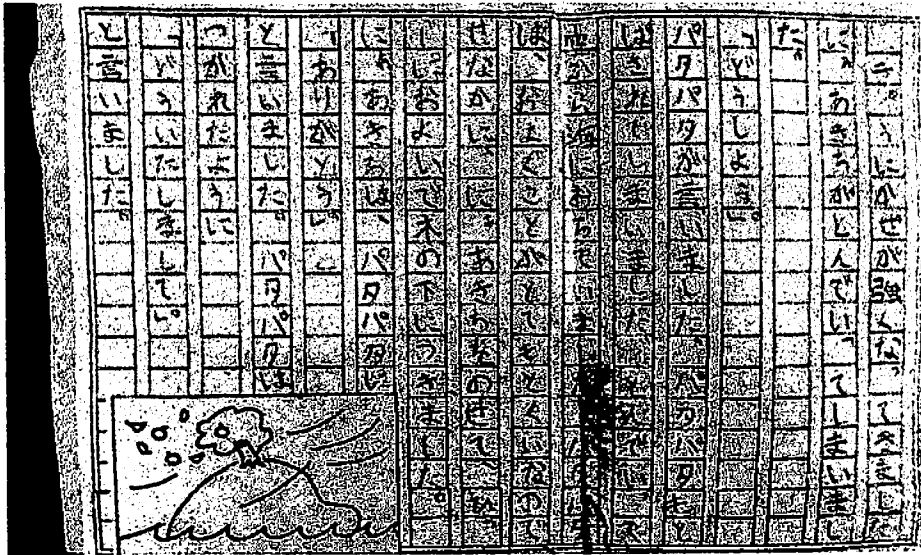 うにかぜが強くなってきまし
あきちがとんでいってしまいまし
た。
「どうしよう」。
パタパタが言いました、パタパタもと
ばされてしまいました。
から海におちて
は、およぐことがとてもとくいなので
せなかに、にあきちをのせて、ひっ
しにおよいで木の下につきました。
にあきちは、パタパタに
「ありがとう。」
と言いました。パタパタは、
つかれたように、
「どういたしまして」。
と言いました。